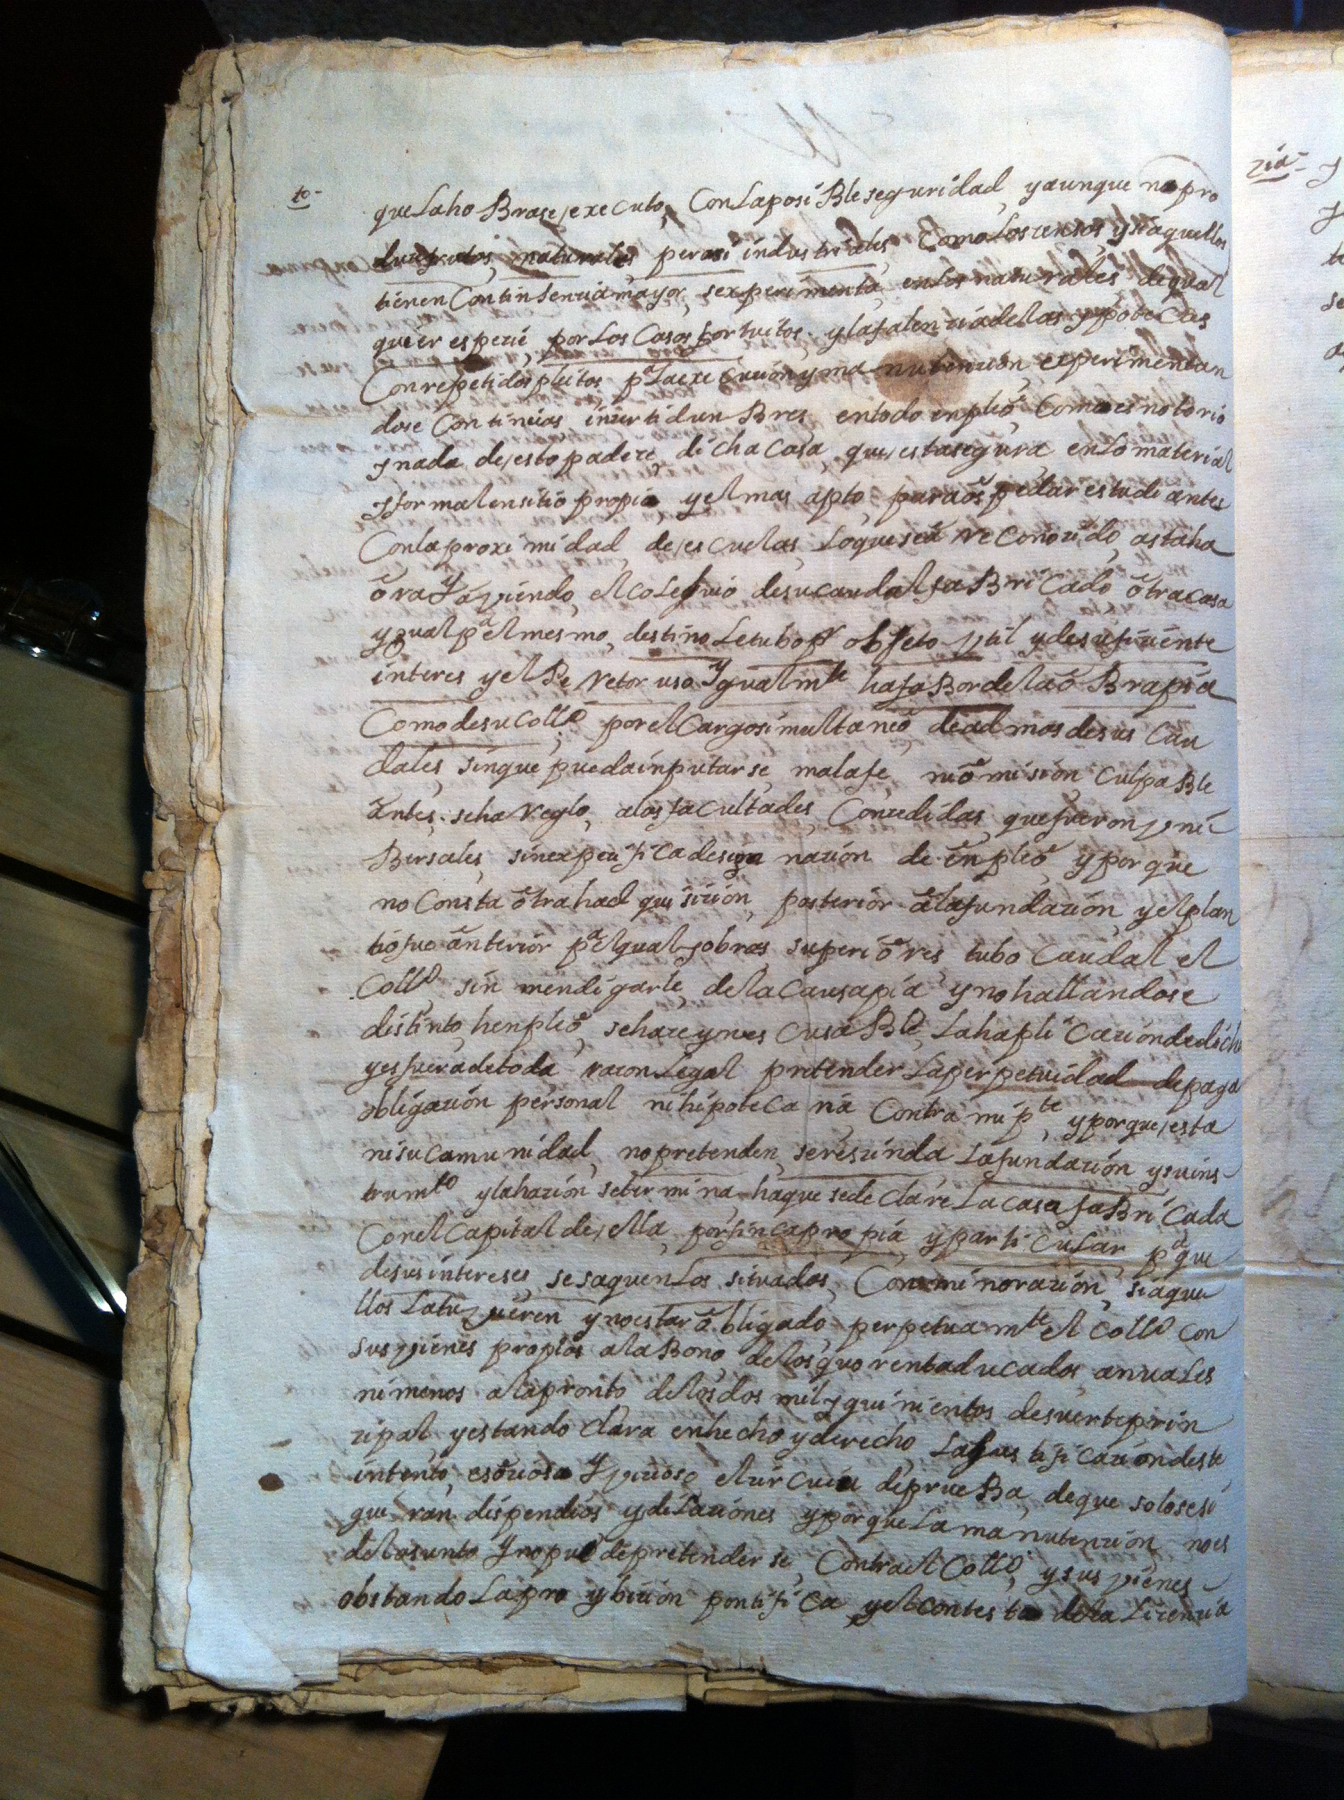 to-
que La ho Bra se, executo, Con La posiBle seguridad, y aunque no pro
duze frutos, naturales, pero si industriales, Como Los censos, y si aquellos
tienen Continsencia mayor, se xperimenta, en Los naturales de qual
quier espezie, por Los Casos fortuitos, y la falencia de las ypotecas
Con repetidos pleitos pª La exe cucion y ma nutencion, experimentan
dose Continuas inzertidumBres en todo enpleo, Como es notorio
y nada de, esto padeze, dicha Casa, que, esta segura en Lo material
y formal en sitio propio, y el mas apto para ospedar estudiantes
Con la proximidad, de, escuelas, Lo que se a reConozido, asta ha
ora y aviendo, el Colegio de su caudal faBriCado otra casa
ygual pª el mesmo, destino Le tubo pr objeto vtil y de suficiente
interes y el Pe Retor uso ygualmte ha faBor de la oBra pia
Como de su Collo por el Cargo simultaneo de admor de sus Cau
dales, sin que pueda inputarse, mala fe, ni omision, CulpaBle
antes, se ha Reglo, a las facultades, Conzedidas, que fueron vni
Bersales, sin expezifica designazion de enpleo y por que
no Consta otra had quisizion, posterior a la fundazion, y el plan
tio fue anterior pª el qual y obras superiores tubo Caudal el
Collo sin mendigarle, de la Causa pia y no hallandose
distinto, henpleo, se haze ynescusaBle, La hapliCazion de dicho
y es fuera de toda razon Legal pretender La perpetuidad de paga
obligazion personal ni hipotecaria Contra mi pte, y por que, esta
ni su Camunidad, no pretenden, se reszinda La fundazion y su ins-
trumto y la hazion se termina ha que se declare La casa faBriCada
Con el Capital de, ella, por finca propia y partiCular pª que
de sus intereses, se saquen Los situados, Con minorazion, si aque
llos La tuvieren y no estar obligado perpetuamte el Collo con
sus vienes propios a la Bono, de los quarenta ducados, anuales
ni menos al apronto de los dos mil y quinientos de suerte prin
zipal y estando Clara en hecho y derecho, La justificazion deste
intento, es oziosa y vizioso el zircuito de prueBa de que solo se si
guiran dispendios y dilaziones y por que La manutenzion no es
del asunto y no puede pretenderse, Contra el Collo y sus vienes-
obstando La proybizion pontifiCa y el contesto de la Lizenzia
zia-